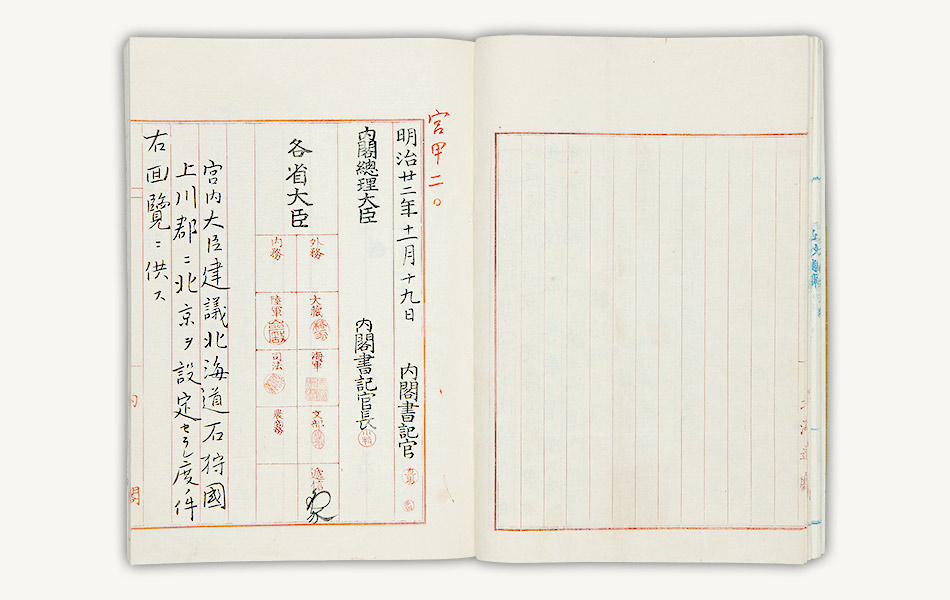 宮甲二〇
明治廿二年十一月十九日
内閣書記官
内閣總理大臣
内閣書記官長
各省大臣
外務
大藏
海軍
文部
遞信
内務
陸軍
司法
農商務
宮内大臣建議北海道石狩國
上川郡ニ北京ヲ設定セラレ度ノ件
右回覽ニ供ス
内閣